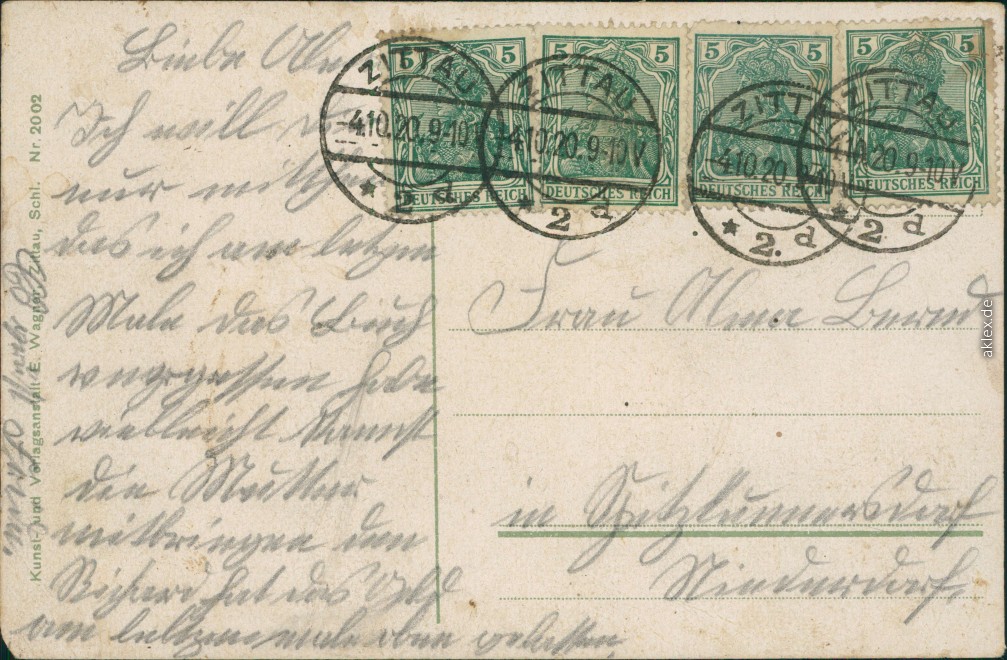 Liebe Alma
Ich will
nur mittheilen
das ich am letzen
Male das Buch
vergessen habe
vielleicht kannst
die Mutter
mitbringen den
Richard hat das Geld
am letzen male oben gelassen
Frau Alma Berndt
in Spitzkunnersdorf
Niederdorf
5 5
5 5
5 5
5 5
DEUTSCHES REICH
DEUTSCHES REICH
DEUTSCHES REICH
DEUTSCHES REICH
ZITTAU
-4.10.20.9-10V
* 2 d
ZITTAU
-4.10.20.9-10V
* 2 d
ZITTAU
-4.10.20.9-10V
* 2. d
ZITTAU
-4.10.20.9-10V
* 2 d
Kunst- und Verlagsanstalt E. Wagner, Zittau, Schl. Nr. 2002
aklex.de